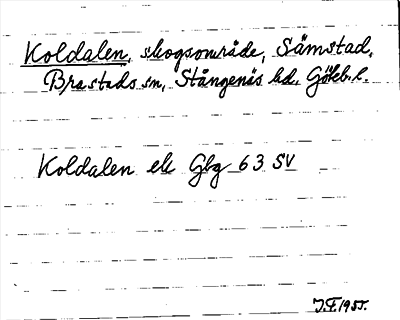 Koldalen, skogsområde, Sämstad,
Brastads sn, Stångenäs hd, Göteb. l.
Koldalen ek Gbg 63 SV
J.F. 1955.